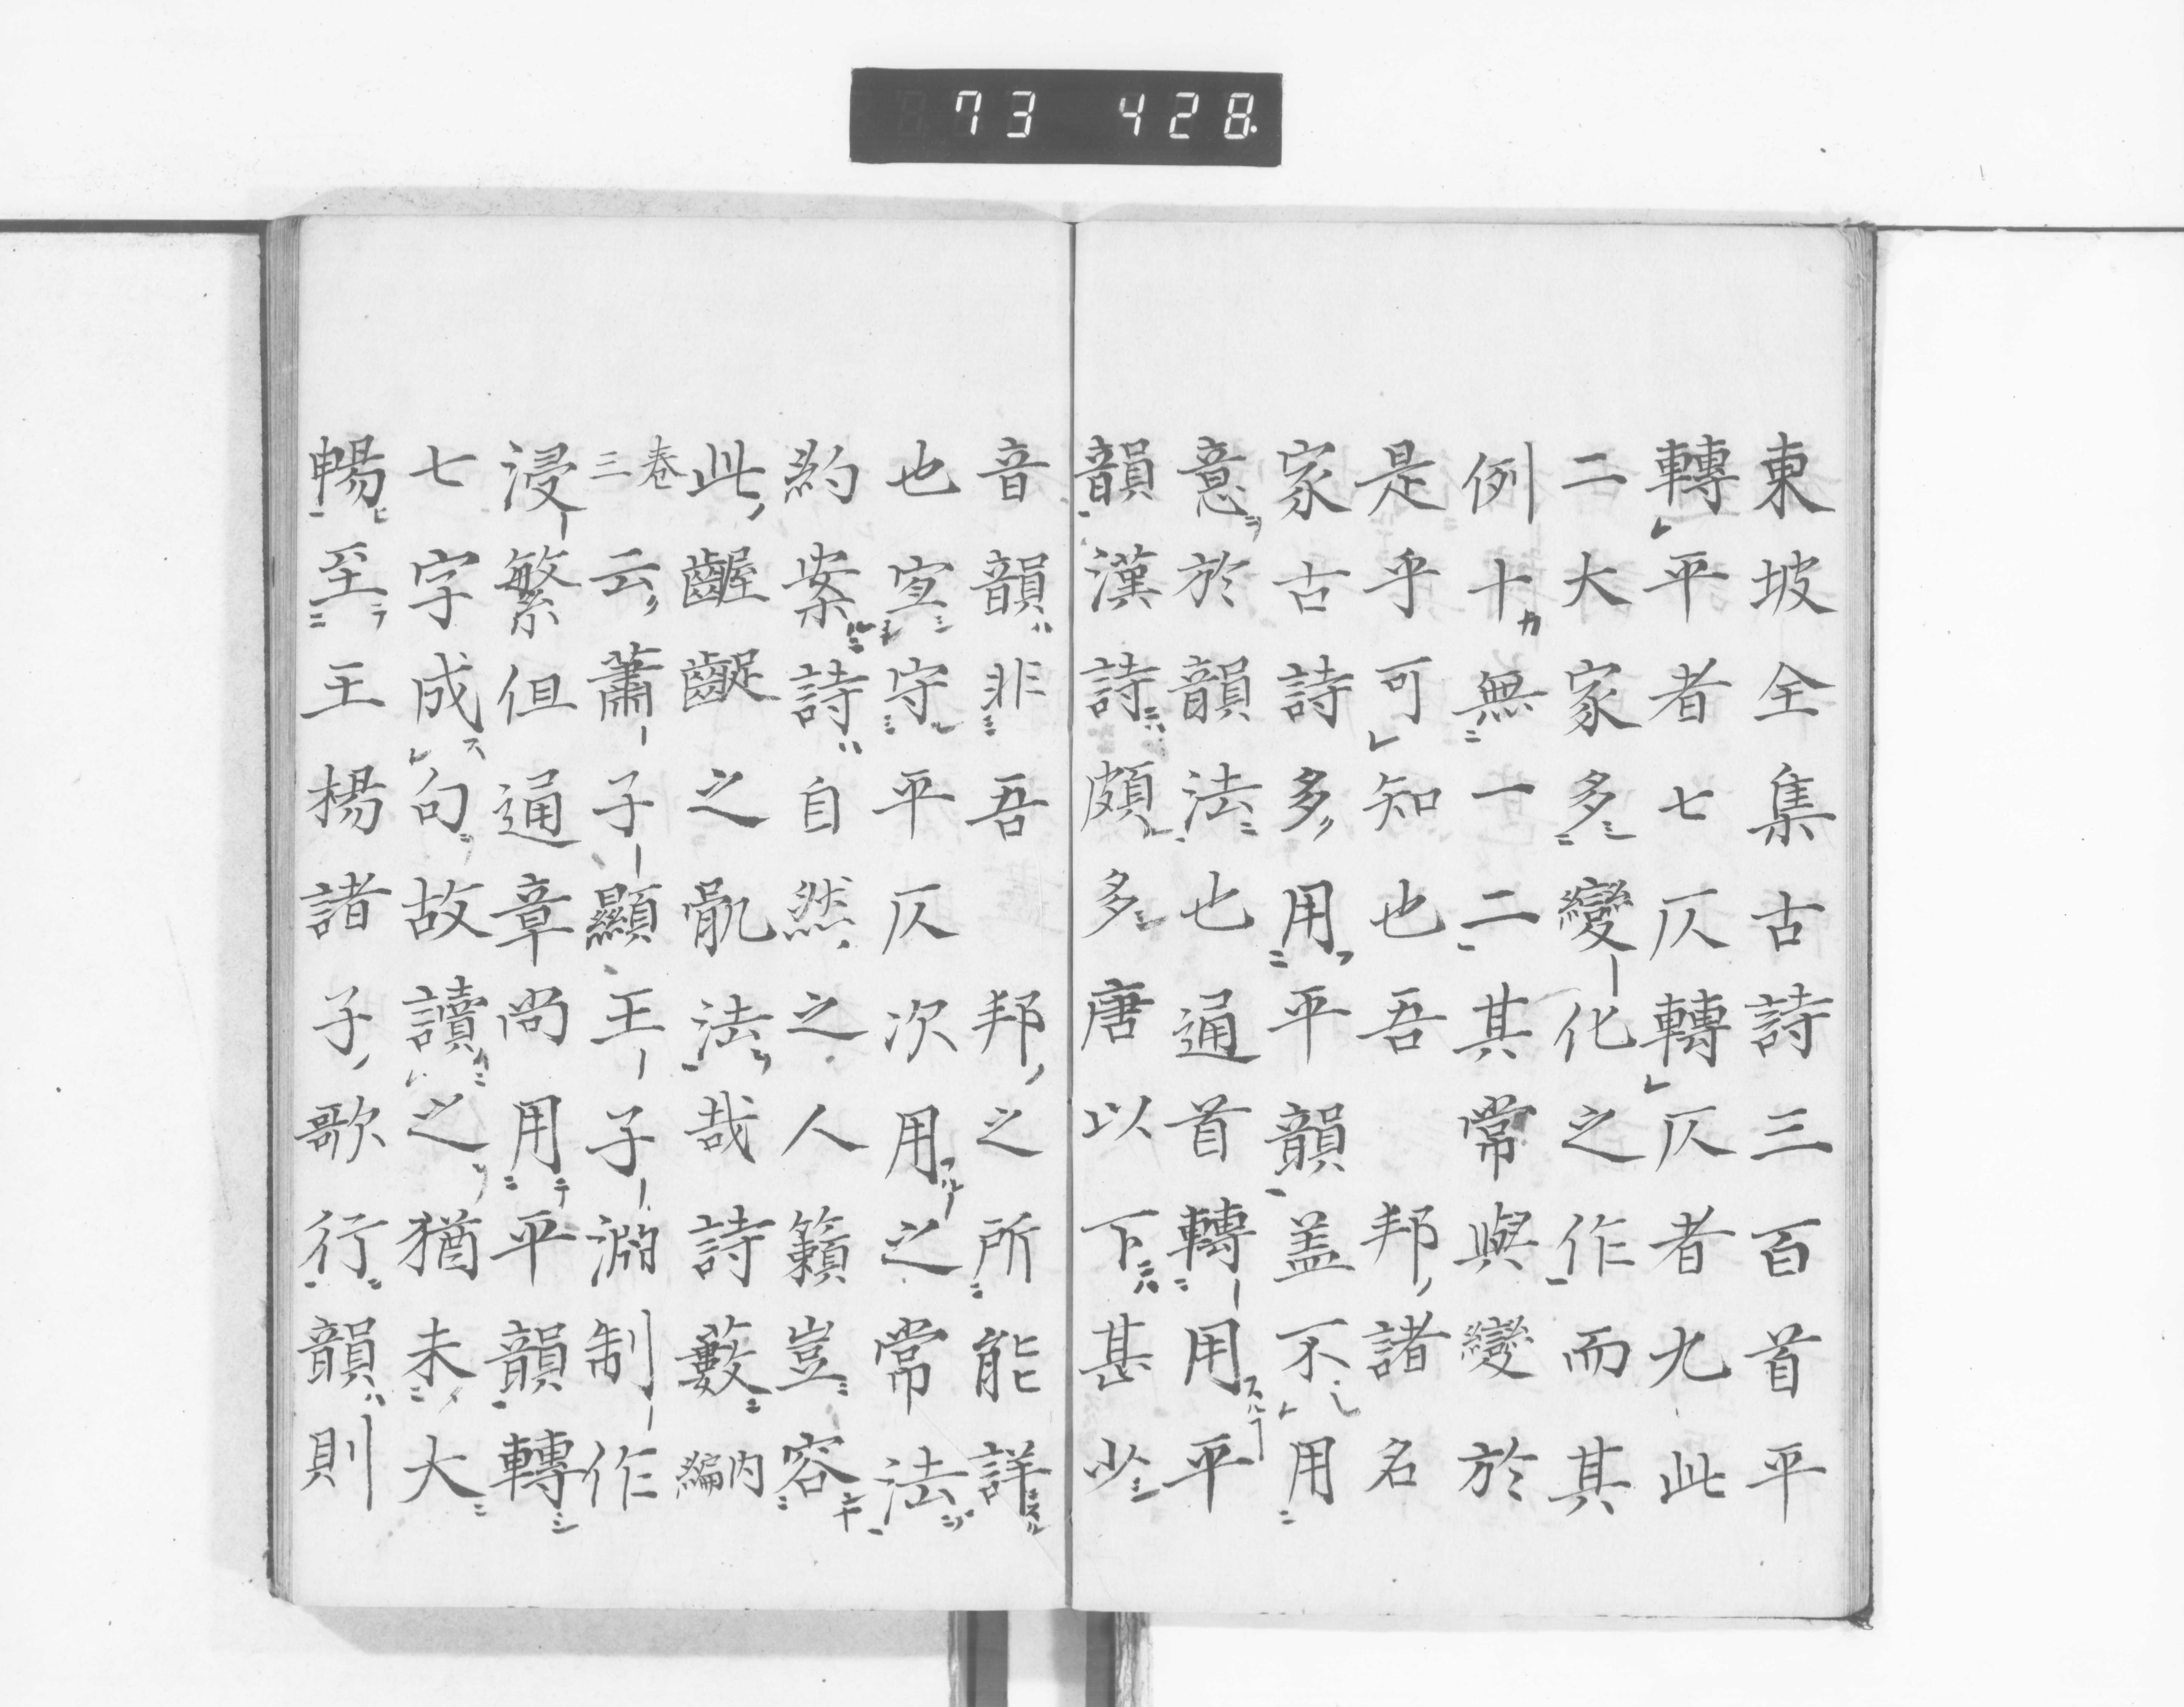 73 428
東坡全集古詩三百首平
轉平者七仄轉仄者九此
二大家多變化之作而其
例十無一二其常與變於
是乎可知也吾邦諸名
家古詩多用平韻盖不用
意於韻法也通首轉用平
韻漢詩頗多唐以下甚少
音韻非吾邦之所能詳
也寔守平仄次用之常法
約案詩自然之人籟豈容
此齷齪之骫法哉詩藪内編
卷三云蕭子顯王子淵制作
浸繁但通章尚用平韻轉
七字成句故讀之猶未大
暢至王楊諸子歌行韻則